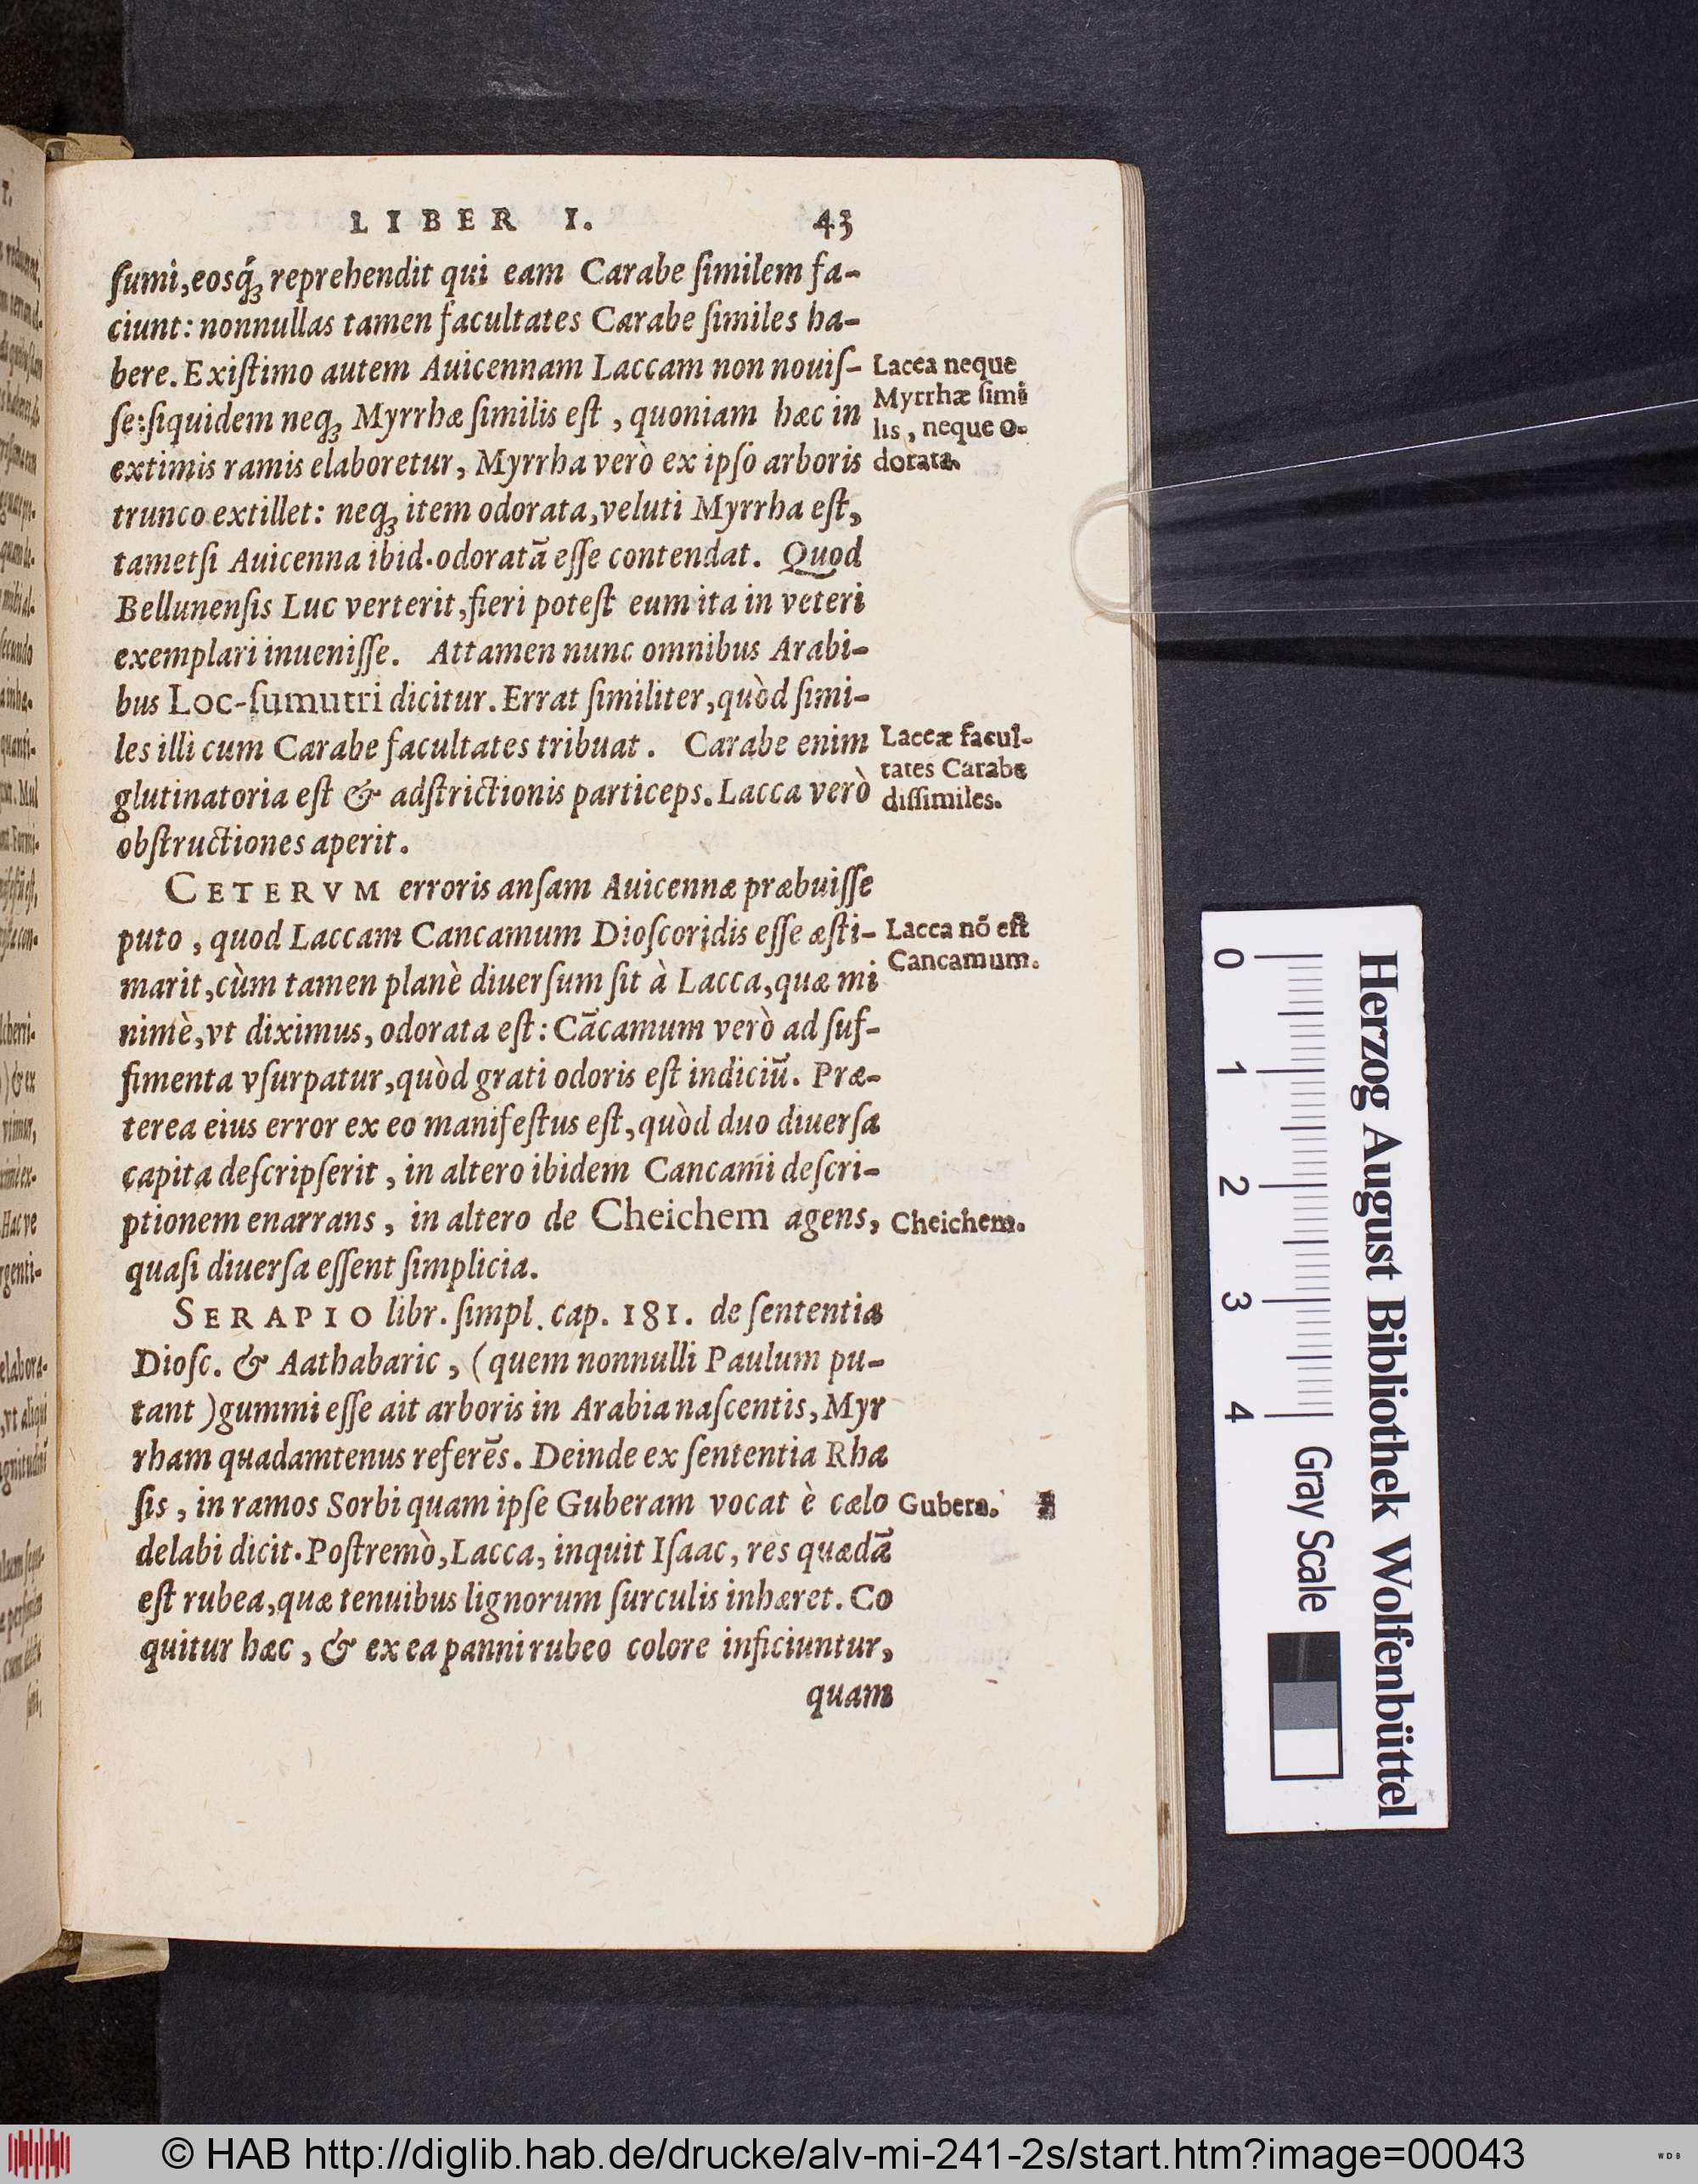 LIBER I. 43
ſumi,eosq́ꝫ reprehendit qui eam Carabe ſimilem fa-
ciunt: nonnullas tamen facultates Carabe ſimiles ha-
bere. Exiſtimo autem Auicennam Laccam non nouiſ-
ſe: ſiquidem neqꝫ Myrrhæ ſimilis eſt , quoniam hæc in
extimis ramis elaboretur, Myrrha verò ex ipſo arboris
trunco extillet: neqꝫ item odorata,veluti Myrrha eſt,
tametſi Auicenna ibid. odoratā eſſe contendat. Quod
Bellunenſis Luc verterit,fieri poteſt eum ita in veteri
exemplari inueniſſe. Attamen nunc omnibus Arabi-
bus Loc-ſumutri dicitur. Errat ſimiliter,quòd ſimi-
les illi cum Carabe facultates tribuat. Carabe enim
glutinatoria eſt & adſtrictionis particeps. Lacca verò
obſtructiones aperit.
CETERVM erroris anſam Auicennæ præbuiſſe
puto , quod Laccam Cancamum Dioſcoridis eſſe æſti-
marit,cùm tamen planè diuerſum ſit à Lacca,quæ mi
nimè,vt diximus, odorata eſt: Cācamum verò ad ſuf-
fimenta vſurpatur,quòd grati odoris eſt indiciū. Præ-
terea eius error ex eo manifeſtus eſt,quòd duo diuerſa
capita deſcripſerit , in altero ibidem Cancami deſcri-
ptionem enarrans , in altero de Cheichem agens,
quaſi diuerſa eſſent ſimplicia.
SERAPIO libr. ſimpl. cap. 181. de ſententia
Dioſc. & Aathabaric , (quem nonnulli Paulum pu-
tant )gummi eſſe ait arboris in Arabia naſcentis, Myr
rham quadamtenus referēs. Deinde ex ſententia Rha
ſis , in ramos Sorbi quam ipſe Guberam vocat è cælo
delabi dicit. Poſtremò,Lacca, inquit Iſaac, res quædā
eſt rubea,quæ tenuibus lignorum ſurculis inhæret. Co
quitur hæc , & ex ea panni rubeo colore inficiuntur,
quam
Lacca neque
Myrrhæ ſimi
lis , neque o-
dorata.
Laccæ facul-
tates Carabe
diſſimiles.
Lacca nō eſt
Cancamum.
Cheichem.
Gubera.
Herzog August Bibliothek Wolfenbüttel
0 1 2 3 4 Gray Scale
© HAB http://diglib.hab.de/drucke/alv-mi-241-2s/start.htm?image=00043
WDB